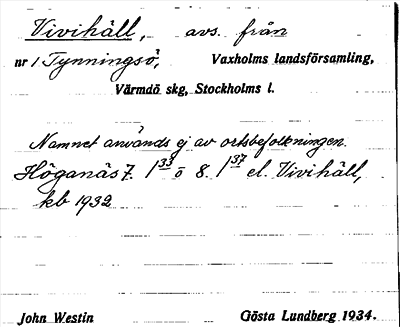 Vivihäll, avs. från
nr 1 Tynningsö, Vaxholms landsförsamling,
Värmdö skg, Stockholms l.
Namnet används ej av ortsbefolkningen.
Höganäs 7. 1³³ o 8. 1³⁷ el. Vivihäll,
kb 1932
John Westin Gösta Lundberg 1934.